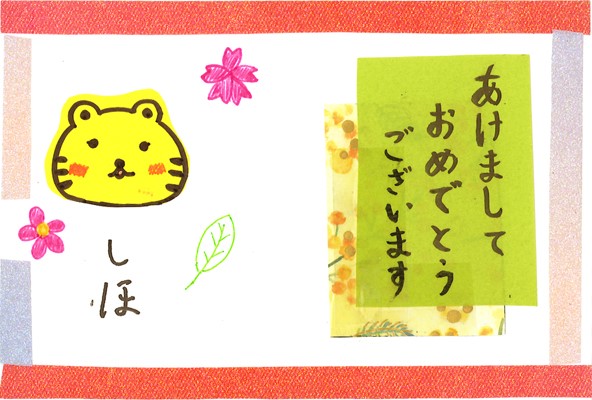 あけまして
おめでとう
ございます
しほ